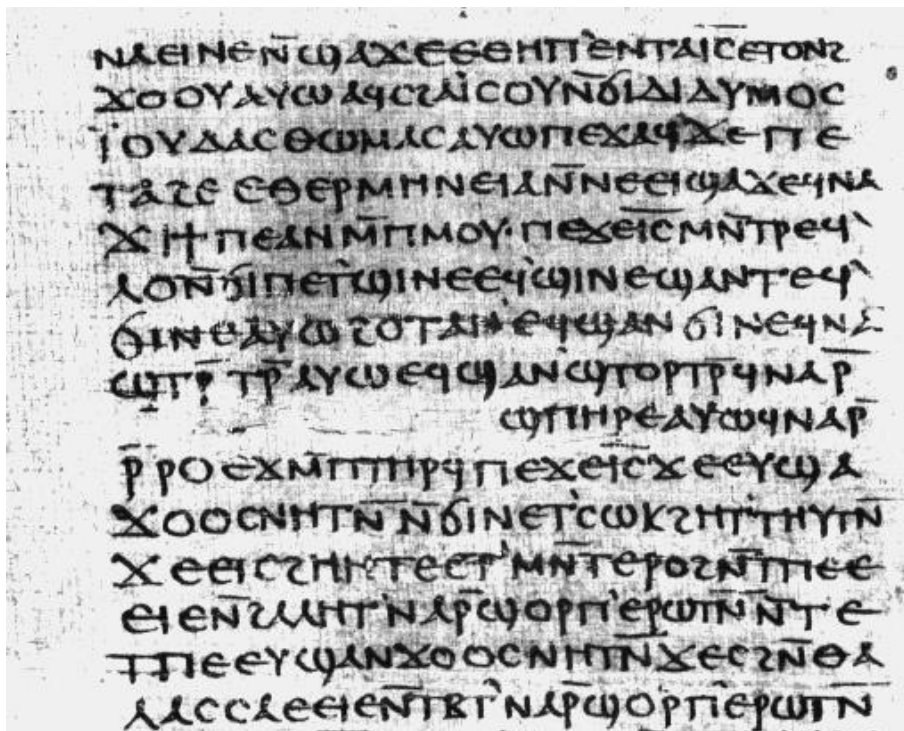 ⲛⲁⲉⲓⲛⲉⲛ̄ϣⲁϫⲉⲉⲑⲏⲡ'ⲉⲛⲧⲁⲓ̅ⲥ̅ⲉⲧⲟⲛϩ
ϫⲟⲟⲩⲁⲩⲱⲁϥⲥϩⲁⲓⲥⲟⲩⲛ̄ϭⲓⲇⲓⲇⲩⲙⲟⲥ
ⲓ̈ⲟⲩⲇⲁⲥⲑⲱⲙⲁⲥⲁⲩⲱⲡⲉϫⲁϥϫⲉⲡⲉ
ⲧⲁϩⲉⲉⲑⲉⲣⲙⲏⲛⲉⲓⲁⲛ̄ⲛⲉⲉⲓϣⲁϫⲉϥⲛⲁ
ϫⲓϯⲡⲉⲁⲛⲙ̄ⲡⲙⲟⲩ·ⲡⲉϫⲉⲓ̅ⲥ̅ⲙⲛ̄ⲧⲣⲉϥ'
ⲗⲟⲛ̄ϭⲓⲡⲉⲧ'ϣⲓⲛⲉⲉϥ'ϣⲓⲛⲉϣⲁⲛⲧⲉϥ'
ϭⲓⲛⲉⲁⲩⲱϩⲟⲧⲁⲛ'ⲉϥϣⲁⲛϭⲓⲛⲉϥⲛⲁ
ϣⲧⲣ̄ⲧⲣ̄ⲁⲩⲱⲉϥϣⲁⲛ'ϣⲧⲟⲣⲧⲣ̄ϥⲛⲁⲣ̄
ϣⲡⲏⲣⲉⲁⲩⲱϥⲛⲁⲣ̄
ⲣ̄ⲣⲟⲉϫⲙ̄ⲡⲧⲏⲣϥⲡⲉϫⲉⲓ̅ⲥ̅ϫⲉⲉⲩϣⲁ
ϫⲟⲟⲥⲛⲏⲧⲛ̄ⲛ̄ϭⲓⲛⲉⲧ'ⲥⲱⲕϩⲏⲧ'ⲧⲏⲩⲧⲛ̄
ϫⲉⲉⲓⲥϩⲏⲏⲧⲉⲉⲧ'ⲙⲛ̄ⲧⲉⲣⲟϩⲛ̄ⲧⲡⲉⲉ
ⲉⲓⲉⲛ̄ϩⲁⲗⲏⲧ'ⲛⲁⲣ̄ϣⲟⲣⲡ'ⲉⲣⲱⲧⲛ̄ⲛ̄ⲧⲉ
ⲧⲡⲉⲉⲩϣⲁⲛϫⲟⲟⲥⲛⲏⲧⲛ̄ϫⲉⲥϩⲛ̄ⲑⲁ
ⲗⲁⲥⲥⲁⲉⲉⲓⲉⲛ̄ⲧⲃⲧ'ⲛⲁⲣ̄ϣⲟⲣⲡ'ⲉⲣⲱⲧⲛ̄